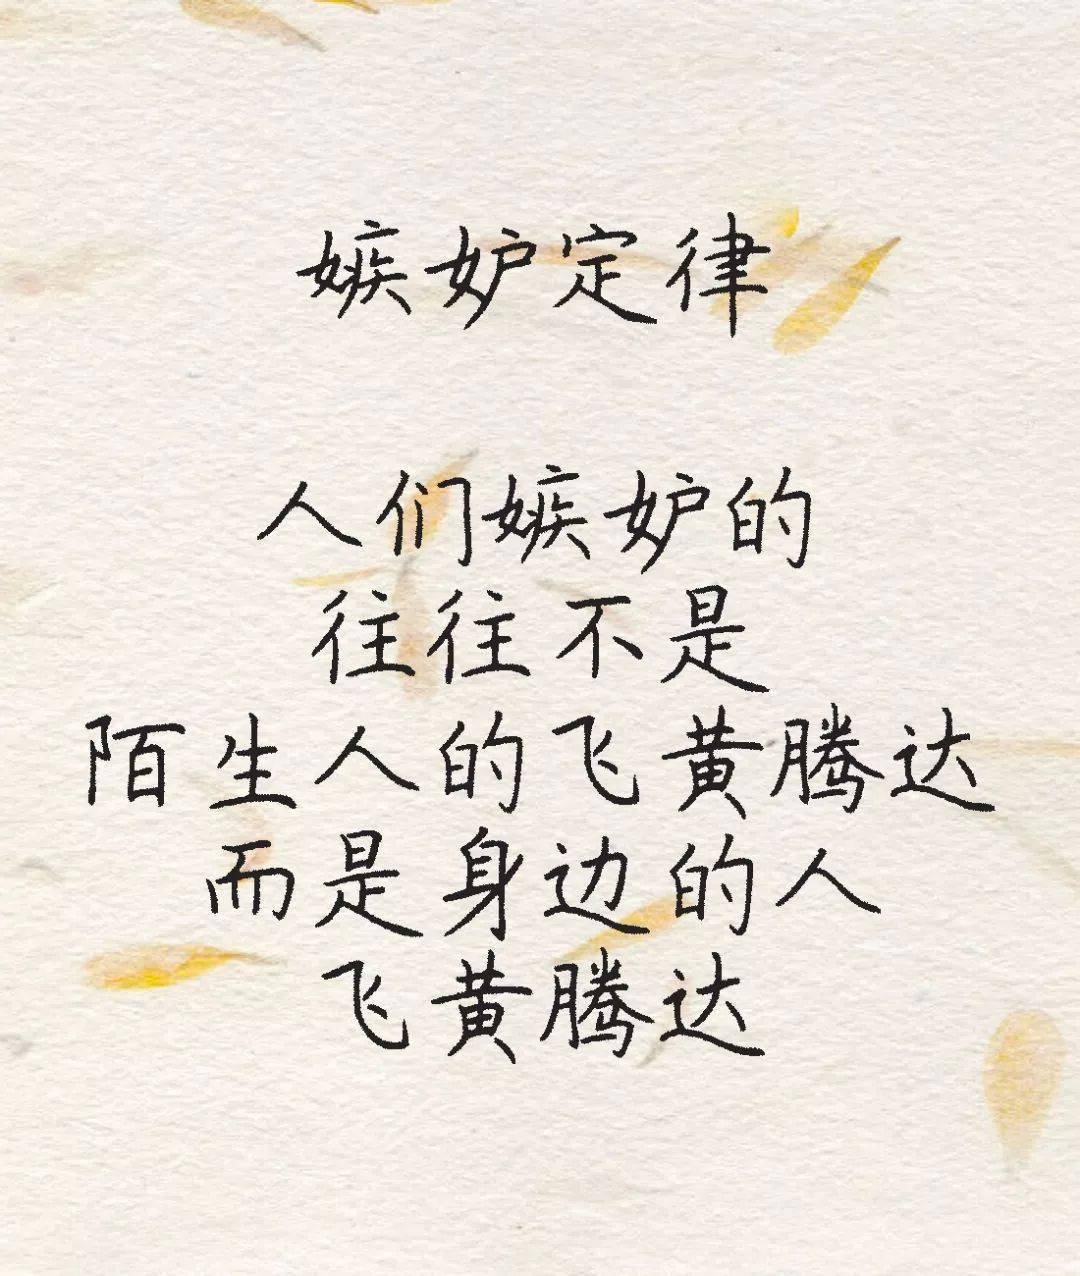 嫉妒定律
人们嫉妒的
往往不是
陌生人的飞黄腾达
而是身边的人
飞黄腾达